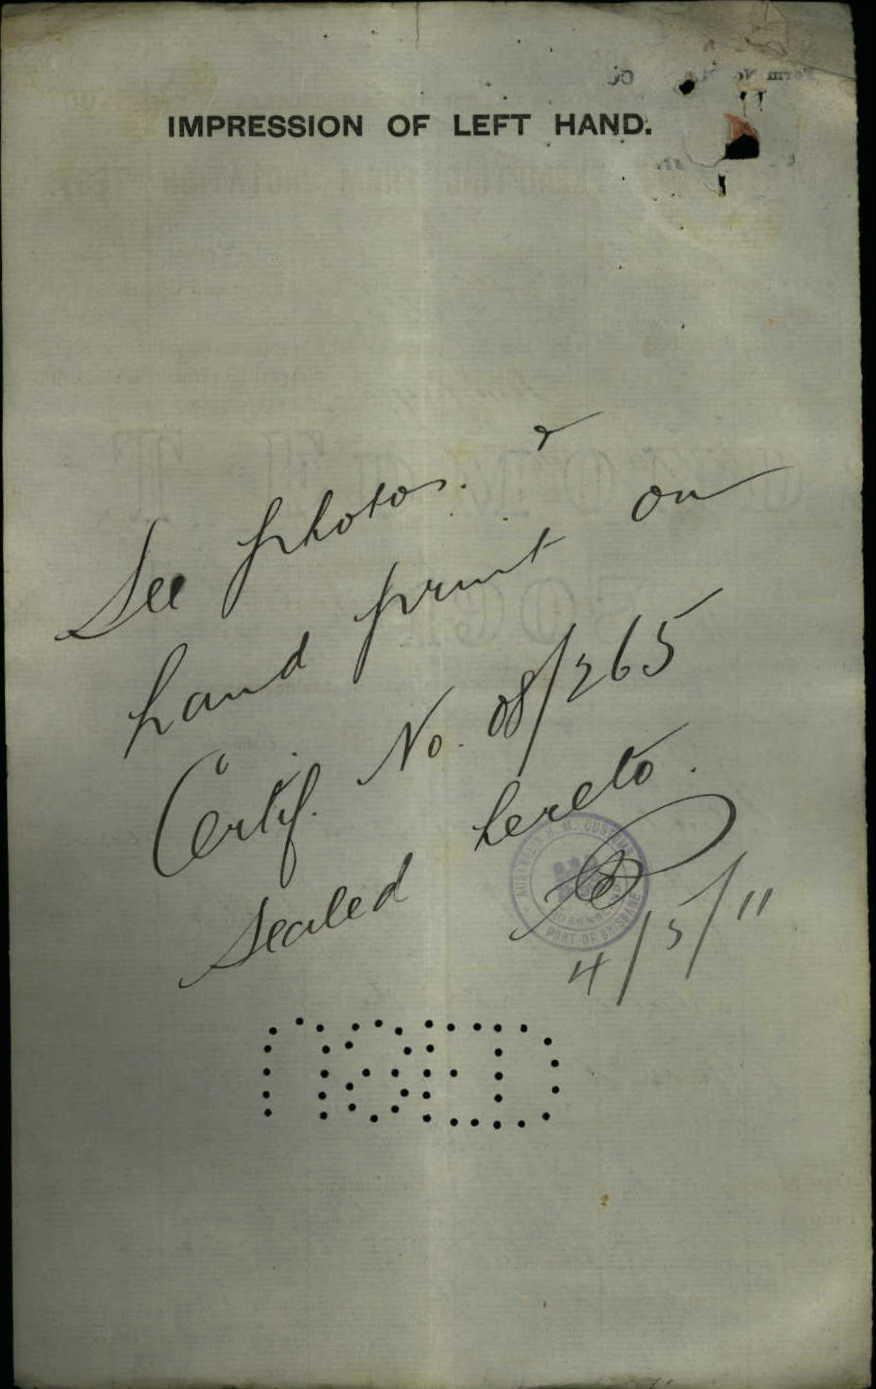 IMPRESSION OF LEFT HAND.
See photos. &
hand print on
Certif. No. 08/265
sealed hereto.
4/5/11
PORT OF BRISBANE